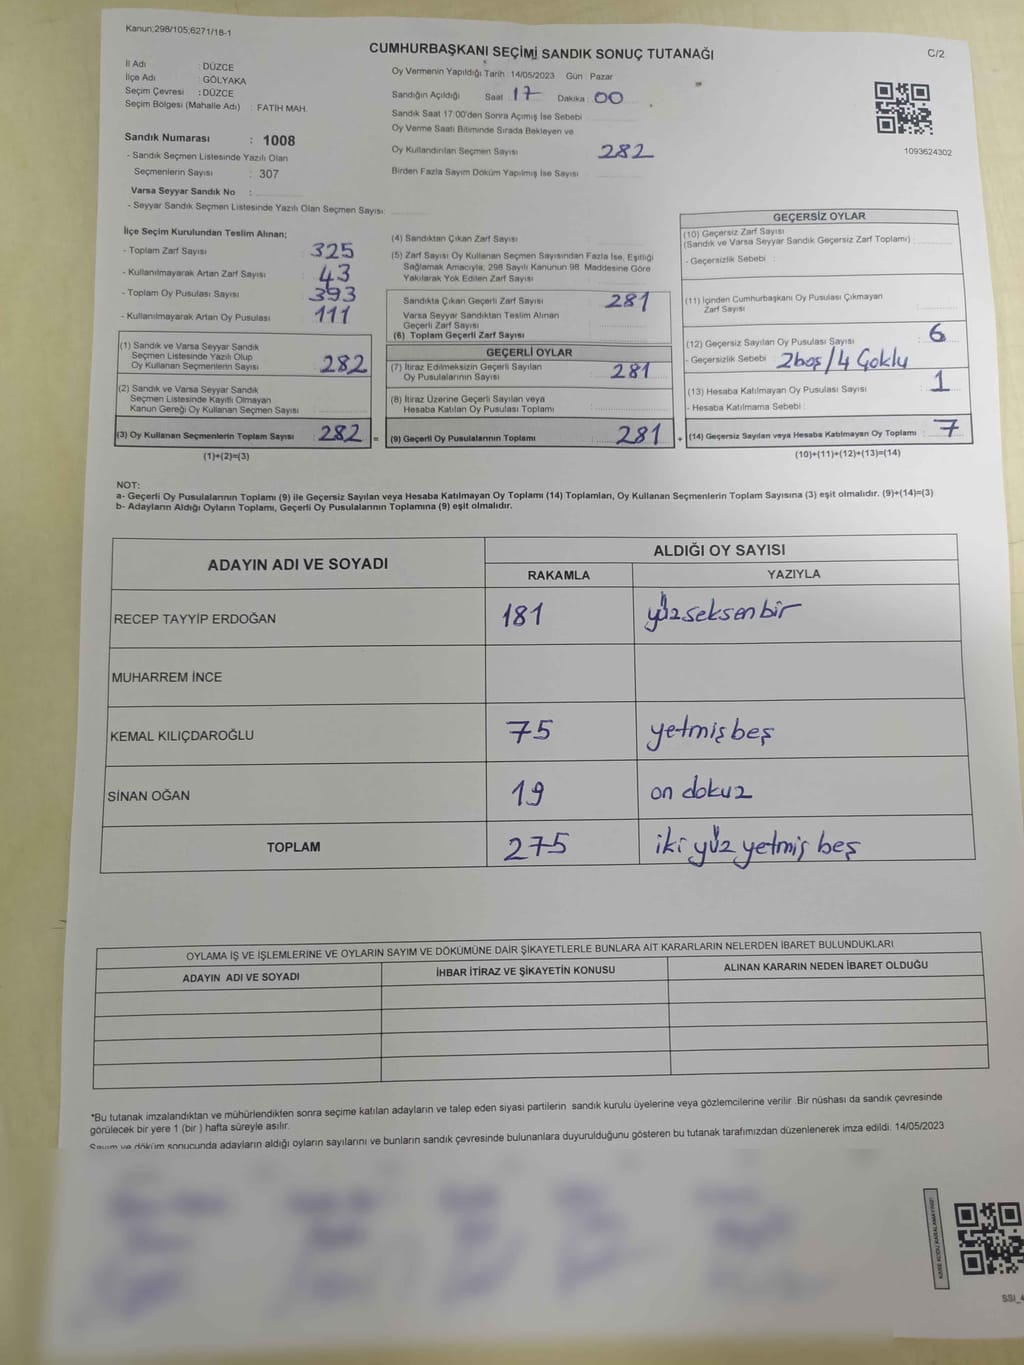 Kanun;298/105,6271/18-1
CUMHURBAŞKANI SEÇİMİ SANDIK SONUÇ TUTANAĞI
C/2
İl Adı : DÜZCE
İlçe Adı : GÖLYAKA
Seçim Çevresi : DÜZCE
Seçim Bölgesi (Mahalle Adı) : FATİH MAH.
Sandık Numarası : 1008
- Sandık Seçmen Listesinde Yazılı Olan
Seçmenlerin Sayısı : 307
Varsa Seyyar Sandık No :
- Seyyar Sandık Seçmen Listesinde Yazılı Olan Seçmen Sayısı:
Oy Vermenin Yapıldığı Tarih : 14/05/2023 Gün : Pazar
Sandığın Açıldığı Saat : 17 Dakika : 00
Sandık Saat 17:00'den Sonra Açımış İse Sebebi
Oy Verme Saati Bitiminde Sırada Bekleyen ve
Oy Kullandırılan Seçmen Sayısı 282
Birden Fazla Sayım Döküm Yapılmış İse Sayısı
1093624302
İlçe Seçim Kurulundan Teslim Alınan;
- Toplam Zarf Sayısı 325
- Kullanılmayarak Artan Zarf Sayısı 43
- Toplam Oy Pusulası Sayısı 393
- Kullanılmayarak Artan Oy Pusulası 111
(1) Sandık ve Varsa Seyyar Sandık
Seçmen Listesinde Yazılı Olup
Oy Kullanan Seçmenlerin Sayısı 282
(2) Sandık ve Varsa Seyyar Sandık
Seçmen Listesinde Kayıtlı Olmayan
Kanun Gereği Oy Kullanan Seçmen Sayısı
(3) Oy Kullanan Seçmenlerin Toplam Sayısı 282 =
(1)+(2)=(3)
(4) Sandıktan Çıkan Zarf Sayısı
(5) Zarf Sayısı Oy Kullanan Seçmen Sayısından Fazla İse, Eşitliği
Sağlamak Amacıyla; 298 Sayılı Kanunun 98. Maddesine Göre
Yakılarak Yok Edilen Zarf Sayısı
Sandıkta Çıkan Geçerli Zarf Sayısı 281
Varsa Seyyar Sandıktan Teslim Alınan
Geçerli Zarf Sayısı
(6) Toplam Geçerli Zarf Sayısı
GEÇERLİ OYLAR
(7) İtiraz Edilmeksizin Geçerli Sayılan
Oy Pusulalarının Sayısı 281
(8) İtiraz Üzerine Geçerli Sayılan veya
Hesaba Katılan Oy Pusulası Toplamı
(9) Geçerli Oy Pusulalarının Toplamı 281 +
GEÇERSİZ OYLAR
(10) Geçersiz Zarf Sayısı
(Sandık ve Varsa Seyyar Sandık Geçersiz Zarf Toplamı) :
- Geçersizlik Sebebi :
(11) İçinden Cumhurbaşkanı Oy Pusulası Çıkmayan
Zarf Sayısı
(12) Geçersiz Sayılan Oy Pusulası Sayısı 6
- Geçersizlik Sebebi : 2boş/4 Çoklu
(13) Hesaba Katılmayan Oy Pusulası Sayısı 1
- Hesaba Katılmama Sebebi :
(14) Geçersiz Sayılan veya Hesaba Katılmayan Oy Toplamı 7
(10)+(11)+(12)+(13)=(14)
NOT:
a- Geçerli Oy Pusulalarının Toplamı (9) ile Geçersiz Sayılan veya Hesaba Katılmayan Oy Toplamı (14) Toplamları, Oy Kullanan Seçmenlerin Toplam Sayısına (3) eşit olmalıdır. (9)+(14)=(3)
b- Adayların Aldığı Oyların Toplamı, Geçerli Oy Pusulalarının Toplamına (9) eşit olmalıdır.
ADAYIN ADI VE SOYADI
ALDIĞI OY SAYISI
RAKAMLA YAZIYLA
RECEP TAYYİP ERDOĞAN 181 yüzseksenbir
MUHARREM İNCE
KEMAL KILIÇDAROĞLU 75 yetmişbeş
SİNAN OĞAN 19 on dokuz
TOPLAM 275 iki yüz yetmiş beş
OYLAMA İŞ VE İŞLEMLERİNE VE OYLARIN SAYIM VE DÖKÜMÜNE DAİR ŞİKAYETLERLE BUNLARA AİT KARARLARIN NELERDEN İBARET BULUNDUKLARI
ADAYIN ADI VE SOYADI İHBAR İTİRAZ VE ŞİKAYETİN KONUSU ALINAN KARARIN NEDEN İBARET OLDUĞU
*Bu tutanak imzalandıktan ve mühürlendikten sonra seçime katılan adayların ve talep eden siyasi partilerin sandık kurulu üyelerine veya gözlemcilerine verilir .Bir nüshası da sandık çevresinde
görülecek bir yere 1 (bir ) hafta süreyle asılır.
Sayım ve döküm sonucunda adayların aldığı oyların sayılarını ve bunların sandık çevresinde bulunanlara duyurulduğunu gösteren bu tutanak tarafımızdan düzenlenerek imza edildi. 14/05/2023
KARE KODU KARALAMAYINIZ!